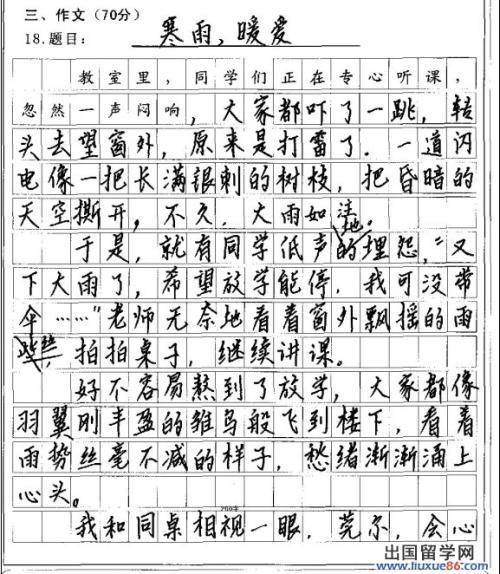 三、作文（70分）
18.题目：寒雨，暖爱
教室里，同学们正在专心听课，
忽然一声闷响，大家都吓了一跳，转
头去望窗外，原来是打雷了．一道闪
电像一把长满银刺的树枝，把昏暗的
天空撕开，不久．大雨如注。
于是，就有同学低声地的埋怨，“又
下大雨了，希望放学能停，我可没带
伞……”老师无奈地看着窗外飘摇的雨
丝，拍拍桌子，继续讲课。
好不容易熬到了放学，大家都像
羽翼刚丰盈的雏鸟般飞到楼下，看着
雨势丝毫不减的样子，愁绪渐渐涌上
心头。
我和同桌相视一眼，莞尔，会心
出国留学网
www.liuxue86.com